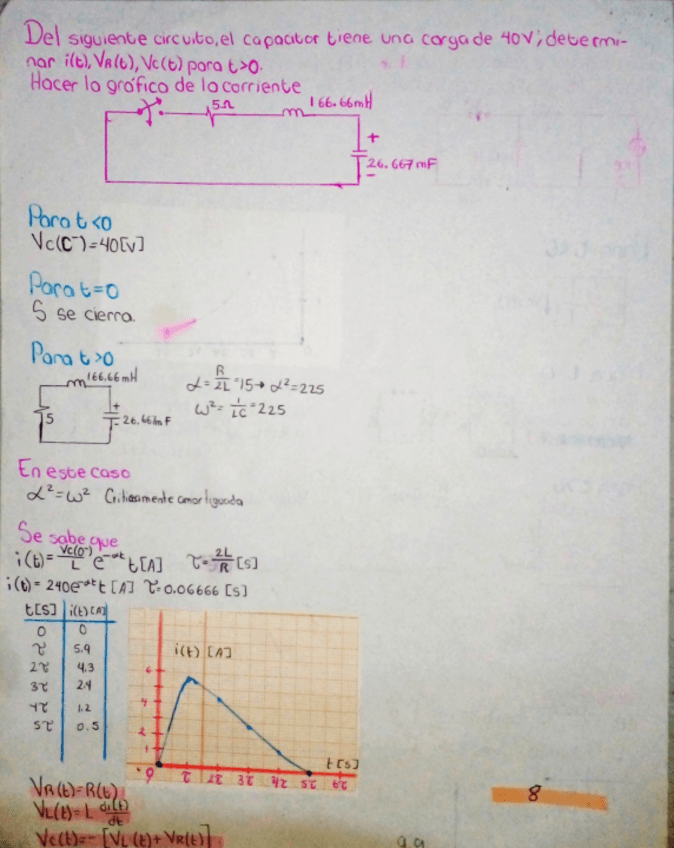 Del siguiente circuito, el capacitor tiene una carga de 40V; determi-
nar i(t), VR(t), Vc(t) para t>0.
Hacer la gráfico de la corriente
5Ω 166.66mH
+
26.667mF
-
Para t<0
Vc(C⁻)=40[V]
Para t=0
S se cierra.
Para t>0
166.66mH
5
+
-
26.66mF
α = R/2L = 15 → α²=225
ω² = 1/LC = 225
En este caso
α²=ω² Críticamente amortiguada
Se sabe que
i(t) = Vc(0⁻)/L e^-αt t [A] τ = 2L/R [s]
i(t) = 240e^-αt t [A] τ=0.06666 [s]
t[s] i(t)[A]
0 0
τ 5.9
2τ 4.3
3τ 2.4
4τ 1.2
5τ 0.5
i(t) [A]
6
4
2
1
t[s]
0 τ 2τ 3τ 4τ 5τ 6τ
VR(t)=R(t)
VL(t)=L di(t)/dt
Vc(t)=-[VL(t)+VR(t)]
8